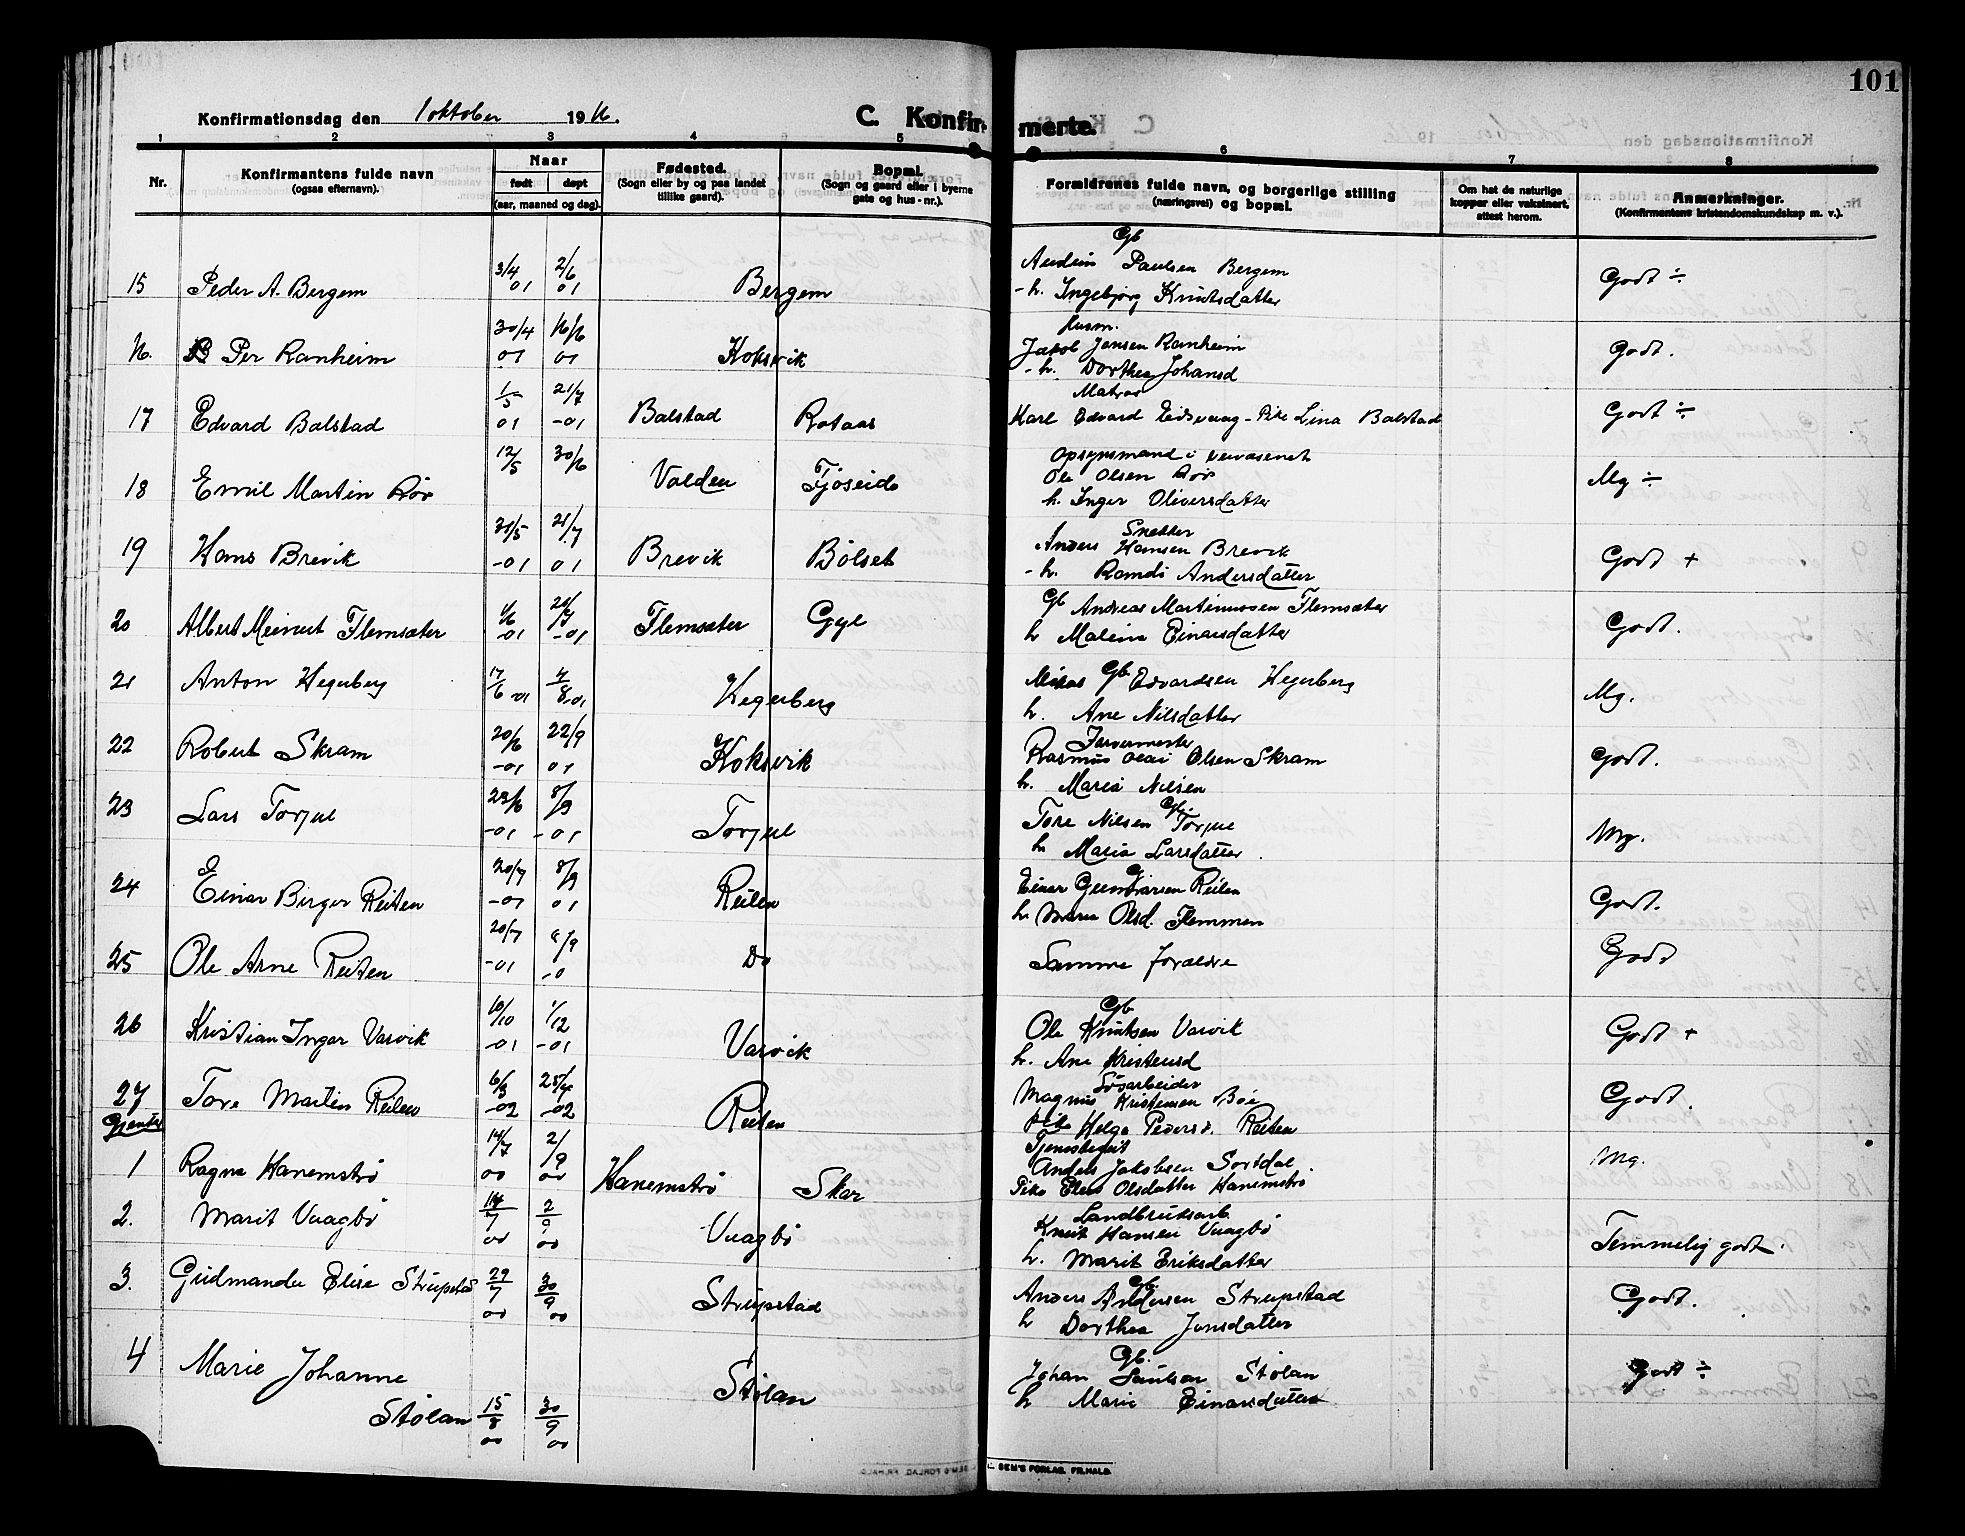 101
Konfirmationsdag den 1 oktober 1916.
C. Konfirmerte.
1 2 3 4 5 6 7 8
Nr.
Konfirmantens fulde navn
(ogsaa efternavn).
Naar
født døpt
(aar, maaned og dag).
Fødested.
(Sogn eller by og paa landet
tillike gaard).
Bopæl.
(Sogn og gaard eller i byerne
gate og hus - nr.).
Forældrenes fulde navn, og borgerlige stilling
(næringsvei) og bopæl.
Om hat de naturlige
kopper eller vaksinert,
attest herom.
Anmerkninger.
(Konfirmantens kristendomskundskap m. v.).
Gb
15 Peder A. Bergem 3/4 01 2/6 01 Bergem Paulsen Bergem Godt ÷
- h. Ingebjørg Knutsdatter
Husm.
16. Per Ranheim 30/4 01 16/6 01 Koksvik Jakob Jensen Ranheim Godt.
- h. Dorthea Johansd
Matros
17 Edvard Balstad 1/5 01 21/7 -01 Balstad Rotaas Karl Edvard Eidsvaag - Pike Lina Balstad Godt ÷
Opsynsmand i veivæsenet
18 Emil Martin Rør 12/5 30/6 Valden Tjøseide Ole Olsen Rør Mg ÷
h. Inger Oliversdatter
Snekker
19 Hans Brevik 31/5 -01 21/7 01 Brevik Bølset Anders Hansen Brevik Godt +
- h. Randi Andersdatter
20 Albert Meinert Flemsæter 1/6 -01 21/7 -01 Flemsæter Gyl Gb Andreas Martinussen Flemsæter Godt.
h Malena Einarsdatter
21 Anton Hegerberg 17/6 01 4/8 01 Hegerberg Gb Edvardsen Hegerberg Mg.
h. Ane Nilsdatter
Farvermester
22 Robert Skram 20/6 -01 22/9 01 Koksvik Rasmus Olai Olsen Skram Godt.
h. Maria Nilsen
Gb.
23 Lars Torjul 23/6 -01 8/9 -01 Torjul Tore Nilsen Torjul Mg.
h Maria Larsdatter.
24 Einar Birger Reiten 20/7 -01 8/9 01 Reiten Einar Gunnarsen Reiten Godt.
h Olsd. Flemmen
25 Ole Arne Reiten 20/7 -01 8/9 -0 Do Samme forældre Godt
Gb.
26 Kristian Ingar Varvik 10/10 -01 1/12 -01 Varvik Ole Knutsen Varvik Godt +
h. Ane Kristensd
Søarbeider
27 Tore Martin Reiten 6/3 -02 25/4 -02 Reiten Magnus Kristensen Bøe Godt.
Pike Helga Pedersd. Reiten
Gjenter
Tjenestegut
1 Ragna Hanemstrø 14/7 00 2/9 00 Hanemstrø Skar Anders Jakobsen Sortdal Mg.
Pike Olsdatter Hanemstrø
Landbruksarb.
2. Marit Vaagbø 14/7 00 2/9 00 Vaagbø Knut Hansen Vaagbø Temmelig godt.
h. Marit Eriksdatter
Gb.
3. Gudmanda Elise Strupstad 29/7 00 30/9 00 Strupstad Anders Andersen Strupstad Godt.
h Dorthea Jonsdatter
Gb.
4 Marie Johanne Johan Stølan Godt ÷
Stølan 15/8 00 30/9 00 Stølan h Marie Einarsdatter
SEM'S FORLAG, FR.HALD.